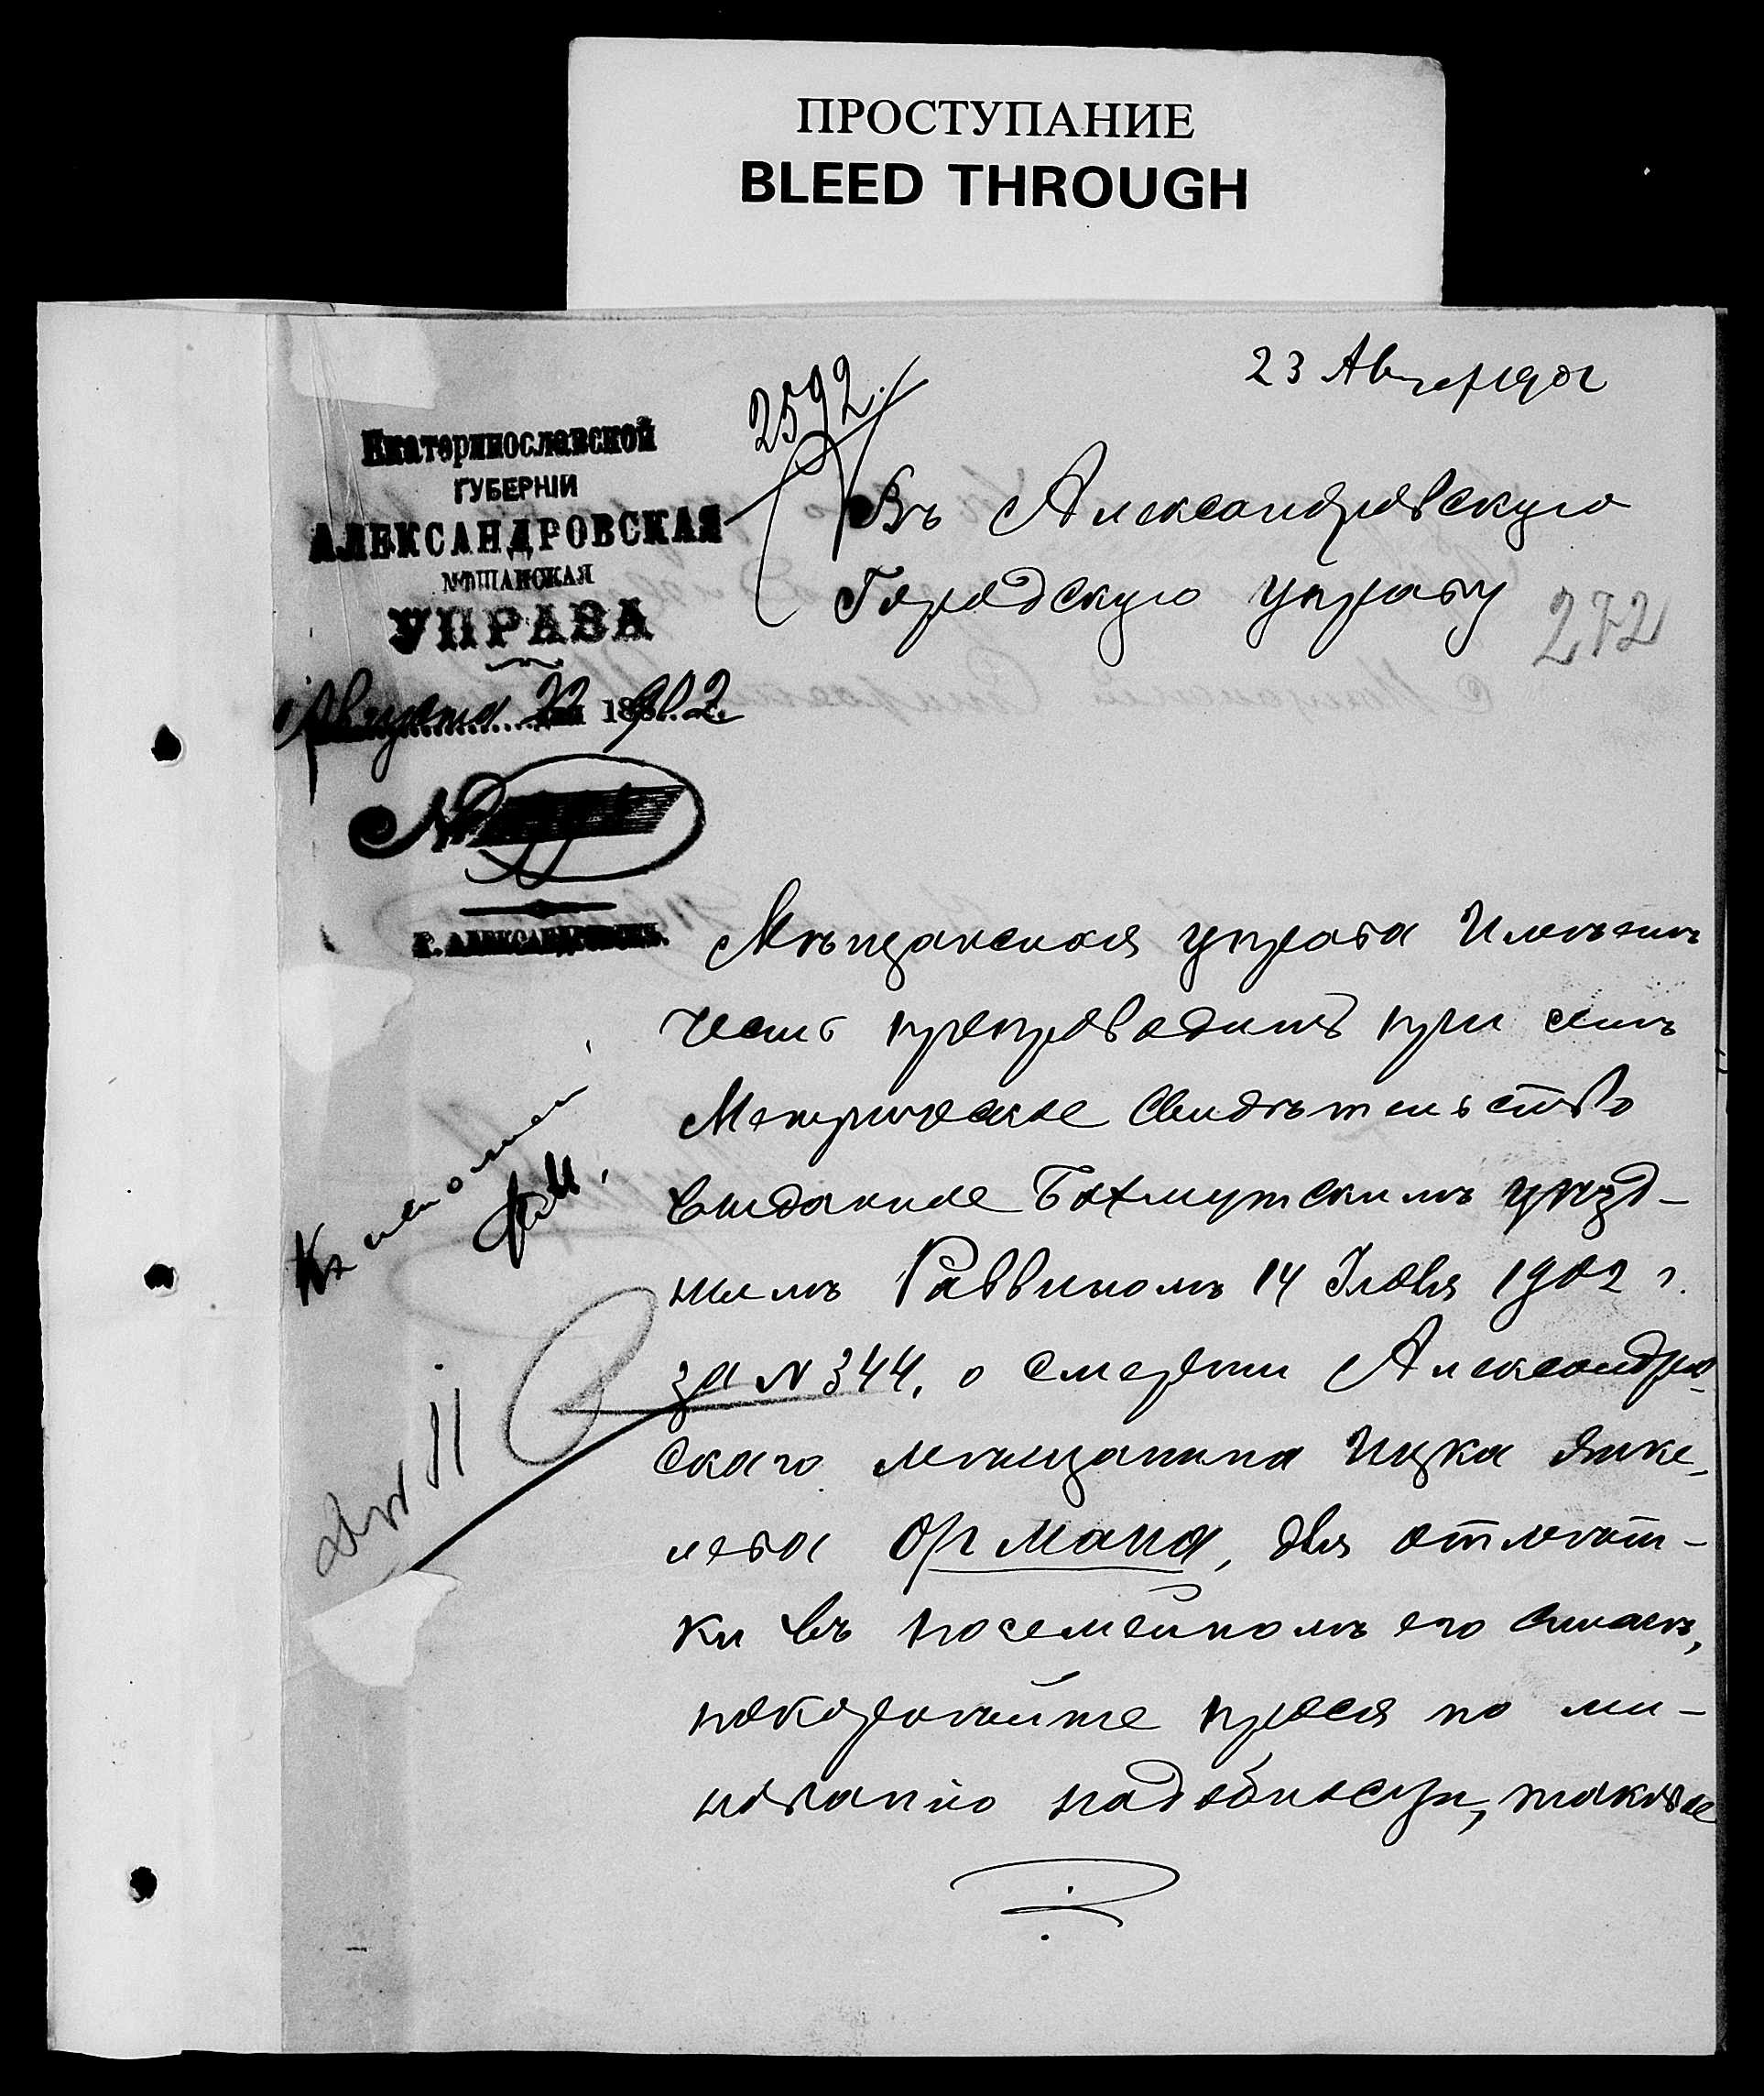 ПРОСТУПАНИЕ
BLEED THROUGH
23 Авгус 1902
2592
Екатеринославской
ГУБЕРНІИ
АЛЕКСАНДРОВСКАЯ
МѢЩАНСКАЯ
УПРАВА
Августа 22 1902
№
г. АЛЕКСАНДРОВСКЪ.
Въ Александровскую
Городскую управу
272
Мѣщанская управа Имѣетъ
честь препроводить при семъ
Метрическое Свидѣтельство
выданное Бахмутскимъ уѣзд-
нымъ Раввиномъ 14 Іюля 1902 г.
за № 344, о смерти Александров-
скаго мѣщанина Ицка Янке-
лева Ормана, для отмѣт-
ки въ посемейномъ его спискѣ,
покорнѣйше прося по ми-
нованію надобности, таковое
Къ исполнен